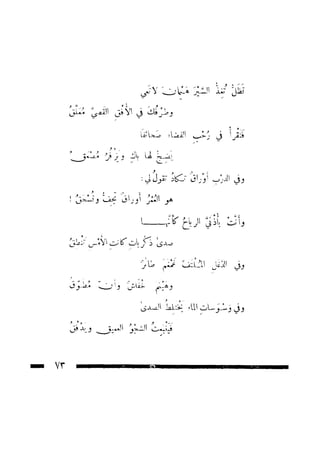 تَظَلُّ تُغِذُّ السَّيْرَ هَيْمَانَ لا تَعي
وطَرْفُكَ في الأُفْقِ القَصِيِّ مُعَلَّقُ
فَتَقْرأُ في رُحْبِ الفضاء صَحائفا
يَضِجُّ لها باكٍ ويَزْفِرُ
وفي الدربِ أوْراقٌ تكادُ تقولُ لي:
هو العُمْرُ أوراقٌ تَجِفُّ وتُسْحَقُ!
وأنَّتْ بأُذْنَيَّ الرياحُ كأنَّهـــا
صدى ذكرياتٍ كانت الأمْسِ تَنْطِقُ
وفي الدَّغَلِ المُلْتَفِّ غَمْغَمَ طائرٌ
وهَيْنَم خُفّاشٌ وأنَّ مُطَوَّقُ
وفي وَسْوَساتِ الماءِ يَخْتَلِطُ الصدى
فيَنْبَعِثُ الشَّجْوُ العميق ويَدْفُقُ
٧٣